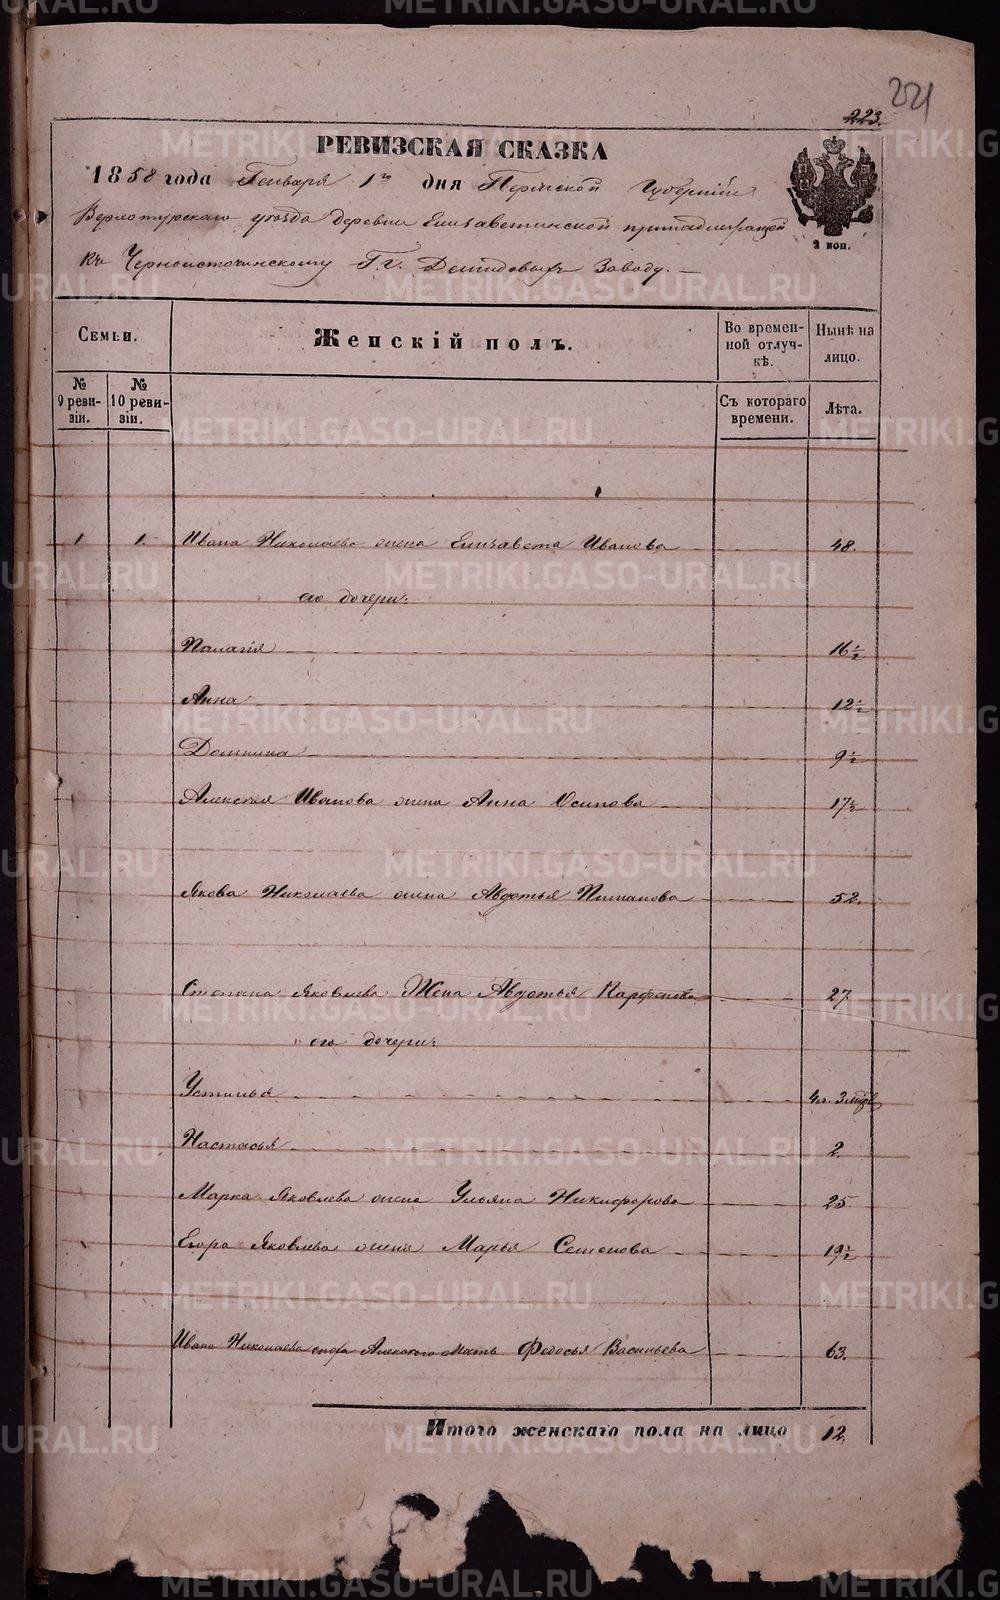 221
223.
РЕВИЗСКАЯ СКАЗКА
1858 года Генваря 1го дня Пермской Губерніи
Верхотурскаго уѣзда деревни Елизаветинской принадлежащей
къ Черноисточинскому Гг. Демидовыхъ Заводу.
2 коп.
Семьи.
Женскій полъ.
Во времен-
ной отлуч-
кѣ.
Нынѣ на
лицо.
№
9 реви-
зіи.
№
10 реви-
зіи.
Съ котораго
времени.
Лѣта.
1 1. Ивана Николаева жена Елизавета Иванова 48.
его дочери:
Палагія 16½
Анна 12½
Домнина 9½
Алексѣя Иванова жена Анна Осипова 17½
Якова Николаева жена Авдотья 52.
Степана Яковлева Жена Авдотья Парфенова 27
его дочери:
Устинья 4 л. 3 мцов
Настасья 2.
Марка Яковлева жена Ульяна Никифорова 25
Егора Яковлева жена Марья Семенова 19½
Ивана Николаева Мать Федосья Васильева 63.
Итого женскаго пола на лицо 12.
METRIKI.GASO-URAL.RU